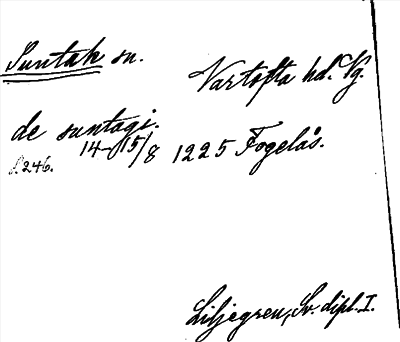 Suntak sn. Vartofta hd. Vg.
de suntagi.
S. 246. 14-15/8 1225 Fogelås.
Liljegren, Sv. dipl. I.